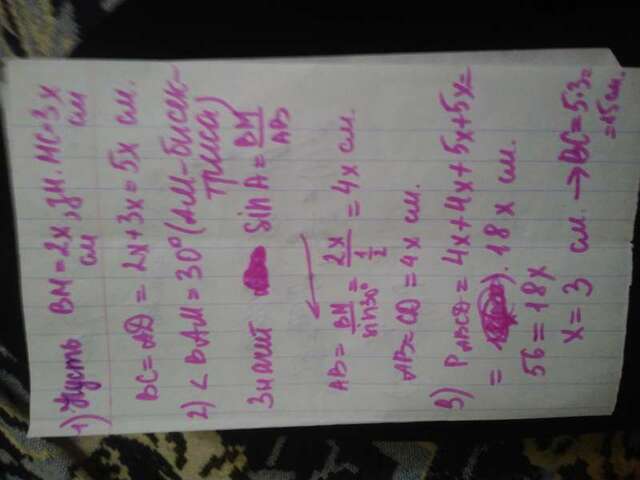 1) Пусть BM = 2x см, зн. MC = 3x см
BC = AD = 2x + 3x = 5x см.
2) < BAM = 30° (AM – бисек-
триса)
Значит sin A = BM/AB
AB = BM/sin30° = 2x/(1/2) = 4x см.
AB = CD = 4x см.
3) P ABCD = 4x + 4x + 5x + 5x =
= 18x см.
56 = 18x
x = 3 см. → BC = 5·3 =
= 15 см.